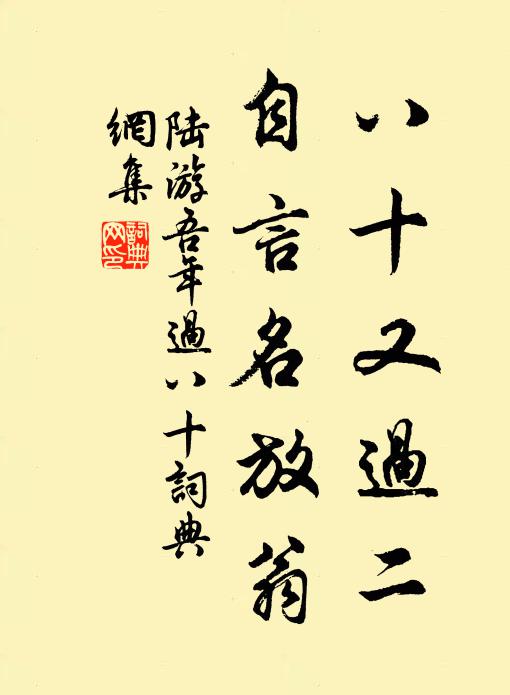 八十又過二
自言名放翁
陸游吾年過八十詞典
網集
詞典
网印